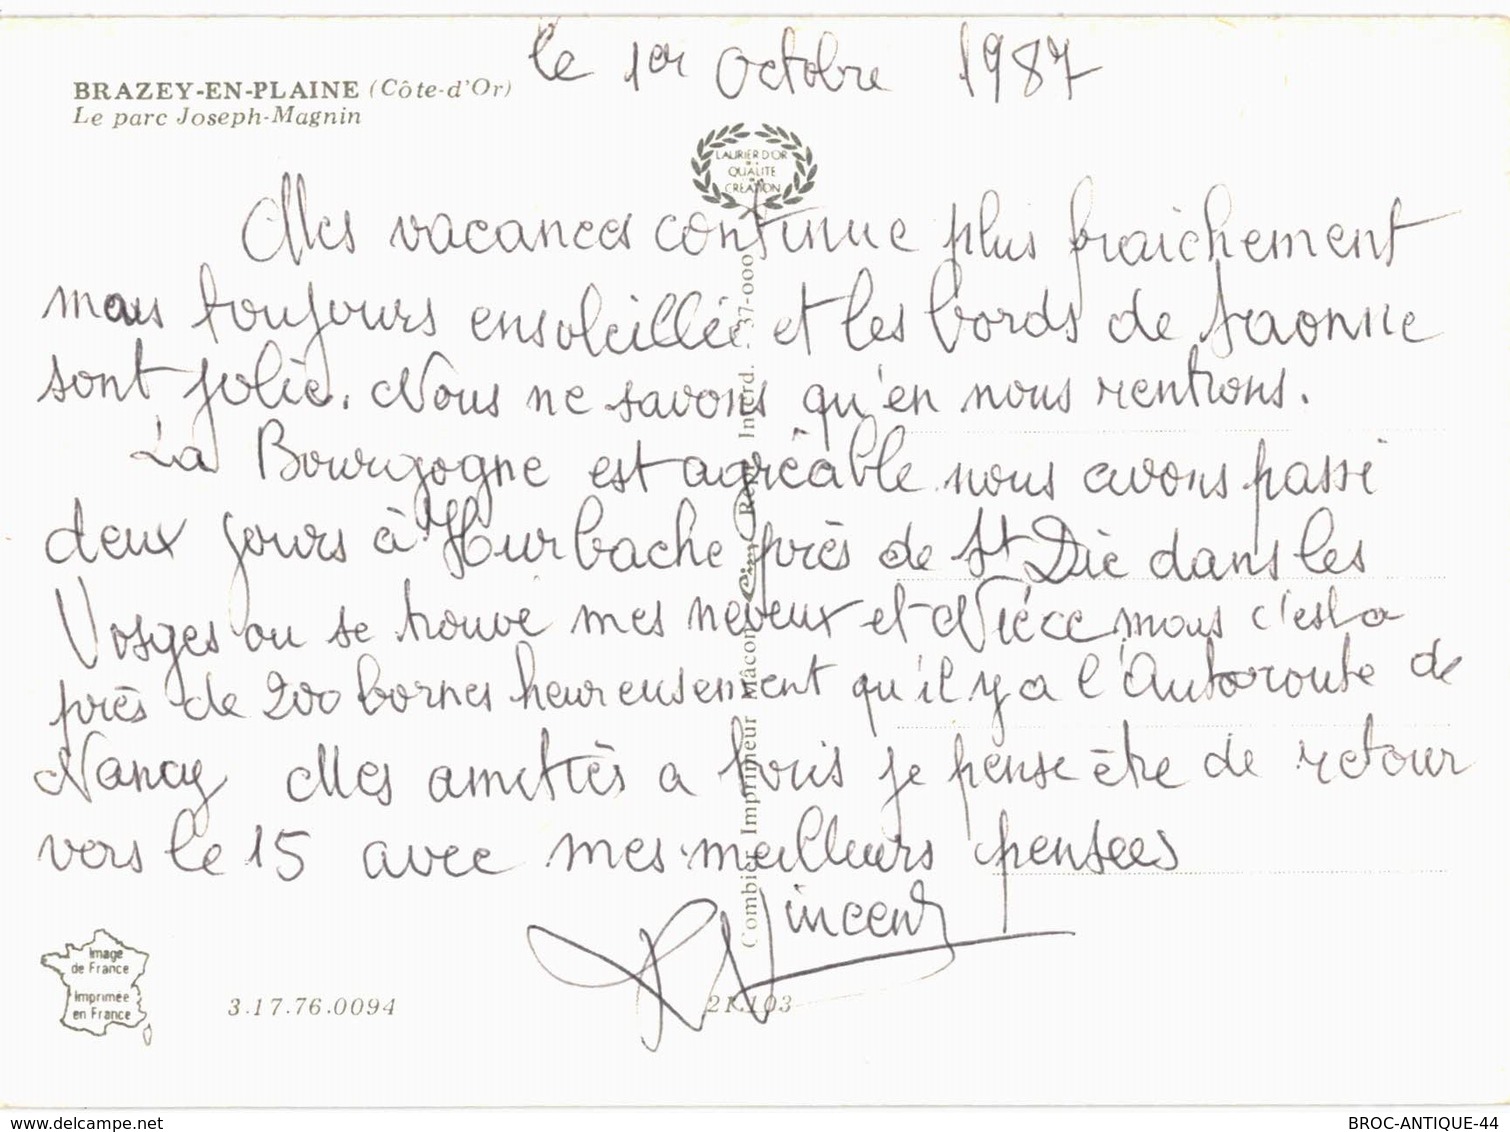 le 1er Octobre 1987
BRAZEY-EN-PLAINE (Côte-d'Or)
Le parc Joseph-Magnin
LAURIER D'OR
DE LA
QUALITÉ
CRÉATION
Mes vacances continue plus fraichement
mais toujours ensoleillée et les bords de Saonne
sont jolie. Nous ne savons qu'en nous rentrons.
La Bourgogne est agréable nous avons passé
deux jours à Hurbache près de St Dié dans les
Vosges ou se trouve mes neveux et Nièce, mais c'est a
près de 200 bornes heureusement qu'il y a l'Autoroute de
Nancy Mes amitiès a tous je pense être de retour
vers le 15 avec mes meilleurs pensees
Vincent
Combier Imprimeur Mâcon Cim Repr. Interd. 37-000
Image
de France
Imprimée
en France
3.17.76.0094
21.103
delcampe.net
BROC-ANTIQUE-44